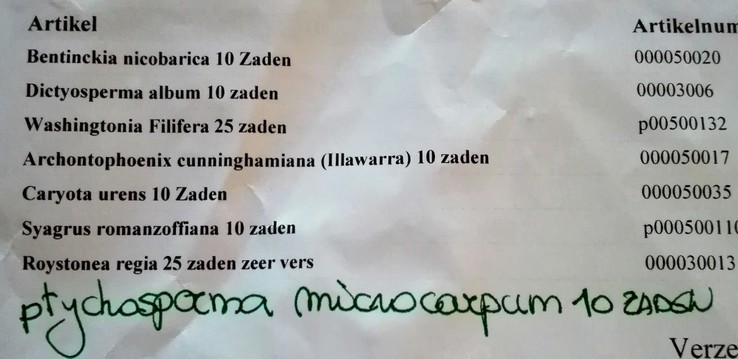 Artikel Artikelnum
Bentinckia nicobarica 10 Zaden 000050020
Dictyosperma album 10 zaden 00003006
Washingtonia Filifera 25 zaden p00500132
Archontophoenix cunninghamiana (Illawarra) 10 zaden 000050017
Caryota urens 10 Zaden 000050035
Syagrus romanzoffiana 10 zaden p000500110
Roystonea regia 25 zaden zeer vers 000030013
ptychosperma microcarpum 10 ZADEN
Verze